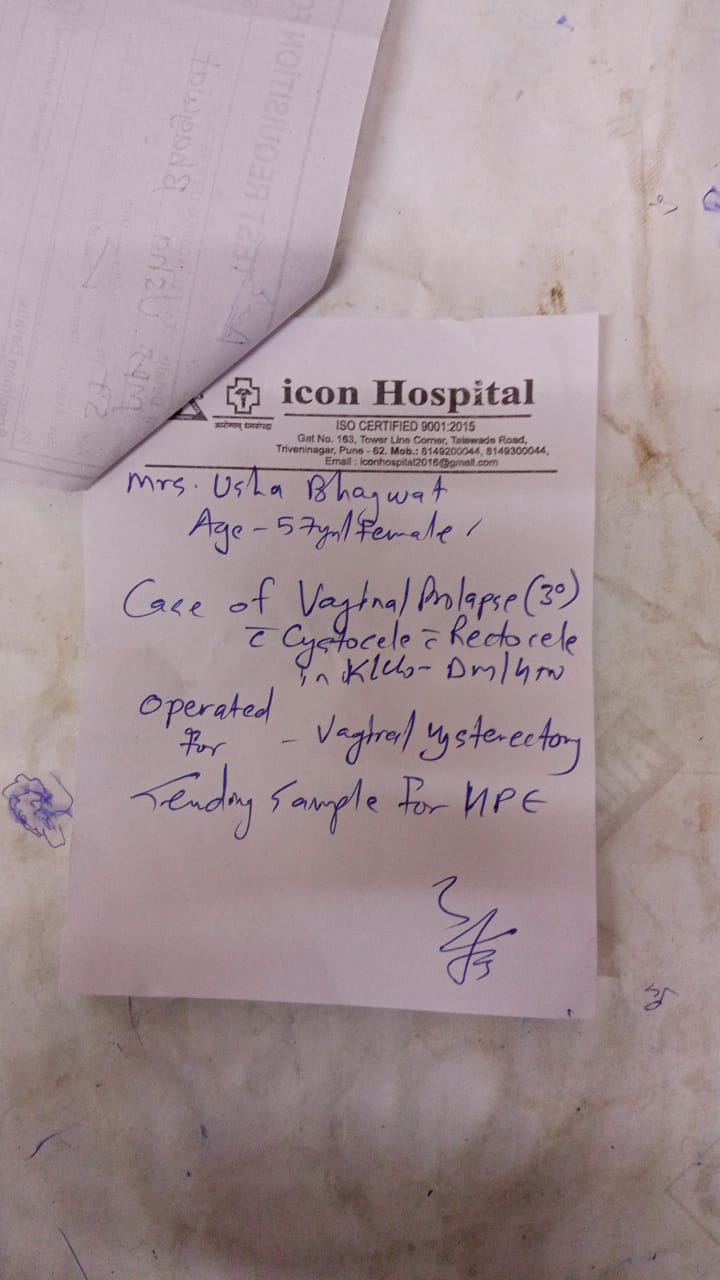 TEST REQUISITION FO
Mrs Usha Bhagwat
57
icon Hospital
आरोग्यम् धनसंपदा
ISO CERTIFIED 9001:2015
Gat No. 163, Tower Line Corner, Talawade Road,
Triveninagar, Pune - 62. Mob.: 8149200044, 8149300044,
Email : iconhospital2016@gmail.com
Mrs. Usha Bhagwat
Age - 57yr/Female
Case of Vaginal Prolapse (3°)
c̄ Cystocele c̄ Rectocele
in K/c/o - Dm/Htn
Operated
for - Vaginal Hysterectomy
Sending Sample for HPE